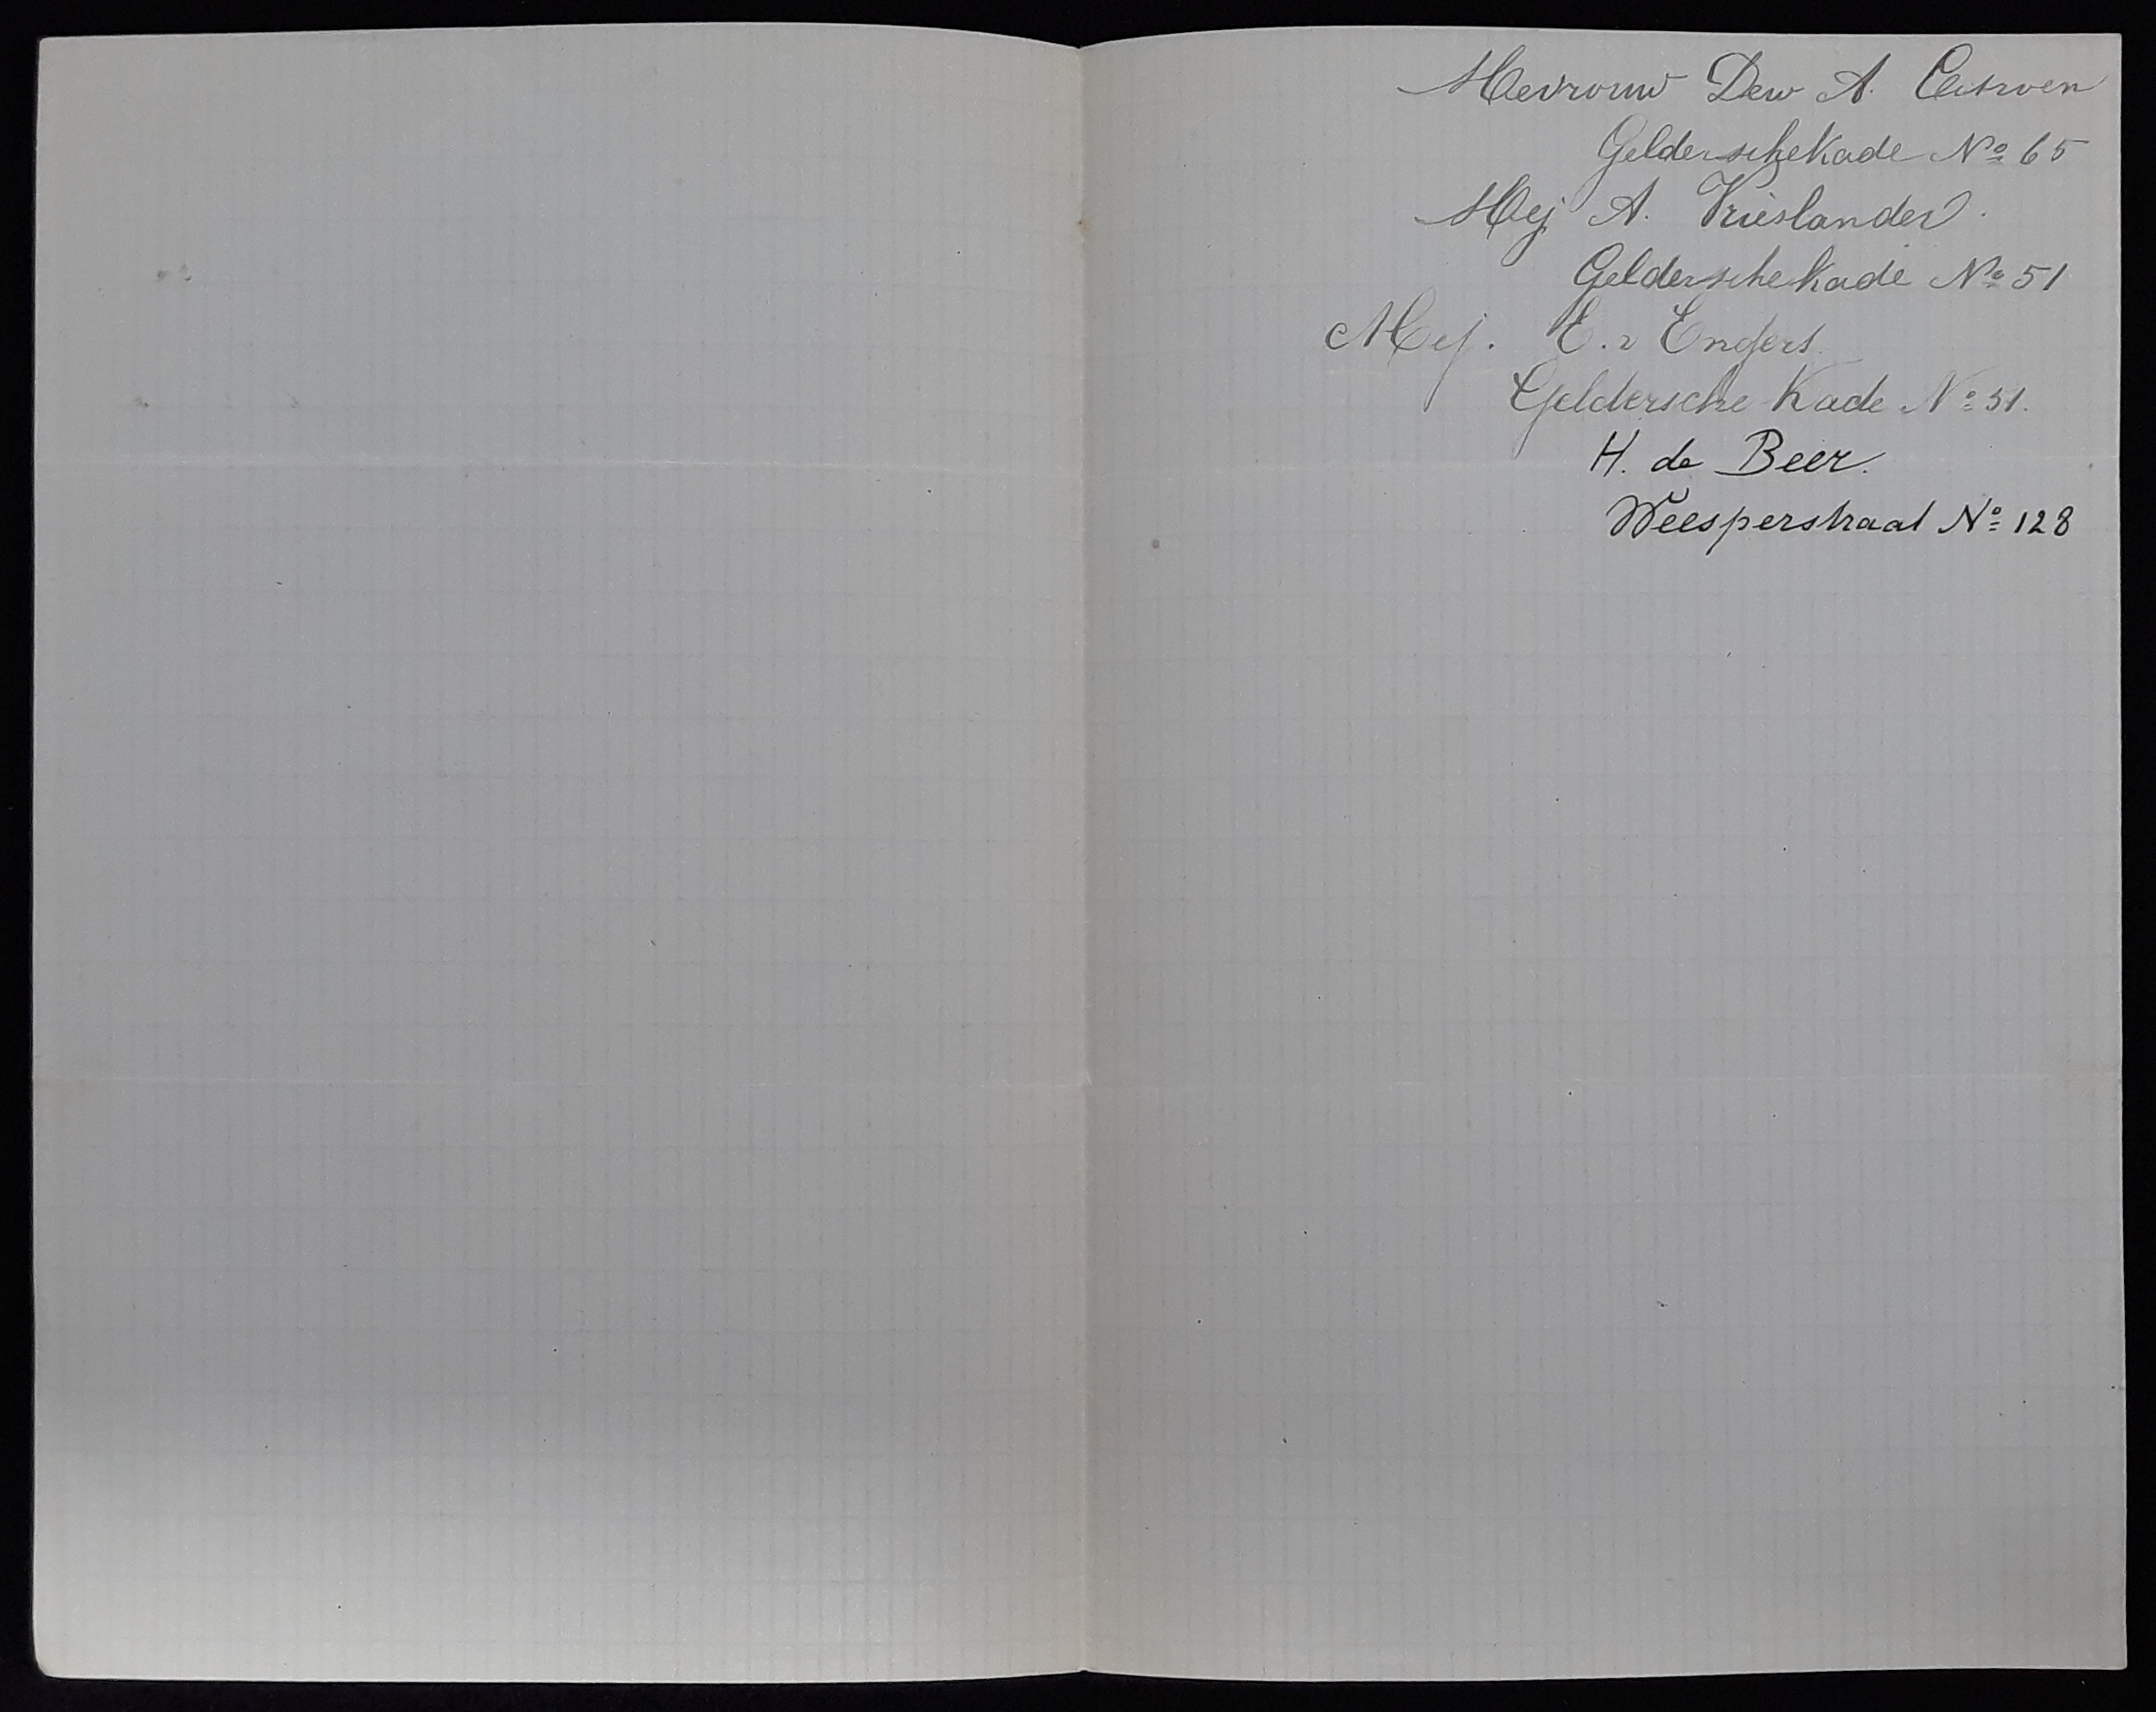 Mevrouw Dew A. Citroen
Gelderschekade Nº 65
Mej A. Vrieslander.
Gelderschekade Nº 51
Mej. E. v Engers
Geldersche Kade Nº 51.
H. de Beer.
Weesperstraat Nº 128